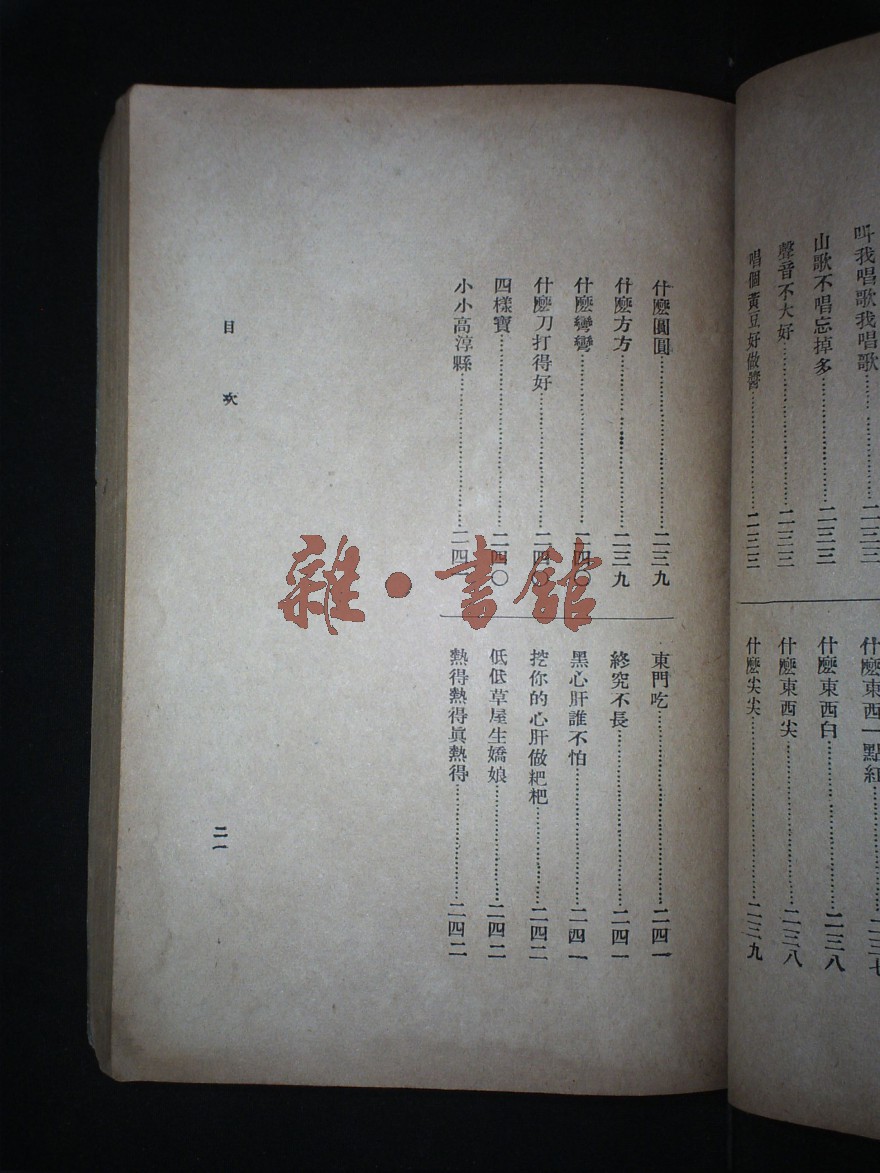 叫我唱歌我唱歌……二三三
山歌不唱忘掉多……二三三
聲音不大好……二三三
唱個黃豆好做醬……二三三
什麽東西一點紅……二三七
什麽東西白……二三八
什麽東西尖……二三八
什麽尖尖……二三九
什麽圓圓……二三九
什麽方方……二三九
什麽彎彎……二四〇
什麽刀打得好……二四〇
四樣寶……二四〇
小小高淳縣……二四
東門吃……二四一
終究不長……二四一
黑心肝誰不怕……二四一
挖你的心肝做粑杷……二四二
低低草屋生嬌娘……二四二
熱得熱得眞熱得……二四二
目次
二一
雜·書館